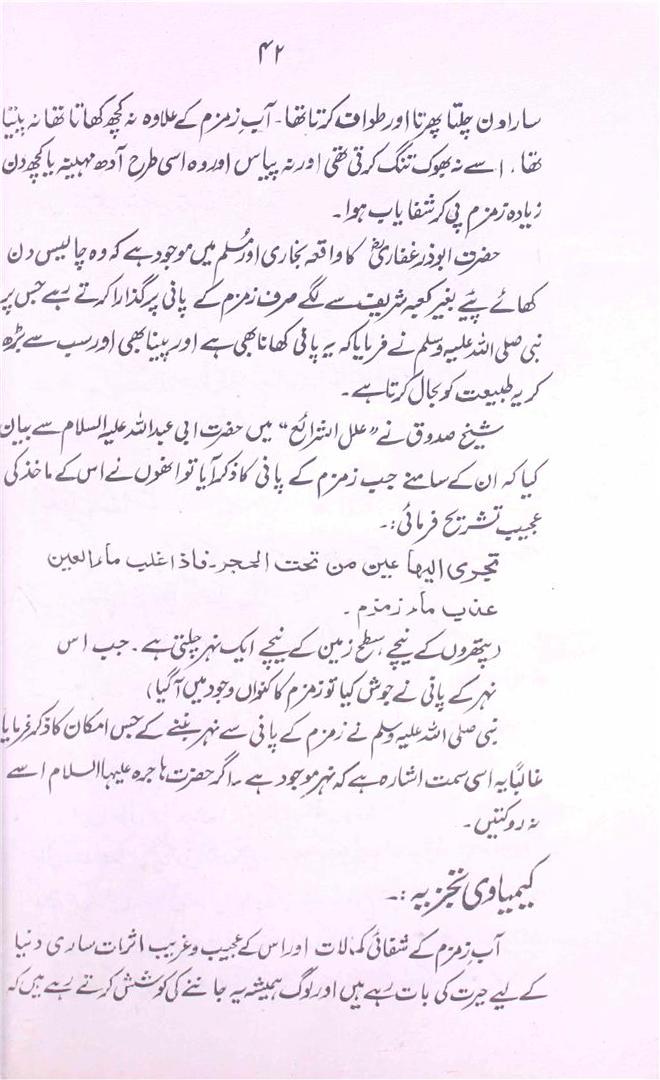 ۴۲
سارا دن چلتا پھرتا اور طواف کرتا تھا۔ آبِ زمزم کے علاوہ نہ کچھ کھاتا تھا نہ پیتا
تھا، اسے نہ بھوک تنگ کرتی تھی اور نہ پیاس اور وہ اسی طرح آدھ مہینہ یا کچھ دن
زیادہ زمزم پی کر شفا یاب ہوا۔
حضرت ابوذر غفاریؓ کا واقعہ بخاری اور مُسلم میں موجود ہے کہ وہ چالیس دن
کھائے پئیے بغیر کعبہ شریف سے لگے صرف زمزم کے پانی پر گذارا کرتے رہے جس پر
نبی صلی اللہ علیہ وسلم نے فرمایا کہ یہ پانی کھانا بھی ہے اور پینا بھی اور سب سے بڑھ
کر یہ طبیعت کو بحال کرتا ہے۔
شیخ صدوق نے ”علل الشرائع“ میں حضرت ابی عبداللہ علیہ السلام سے بیان
کیا کہ ان کے سامنے جب زمزم کے پانی کا ذکر آیا تو انھوں نے اس کے ماخذ کی
عجیب تشریح فرمائی:۔
تجری الیھا عین من تحت الحجر۔ فاذا غلب ماء العین
عذب ماء زمزم۔
(پتھروں کے نیچے، سطح زمین کے نیچے ایک نہر چلتی ہے۔ جب اس
نہر کے پانی نے جوش کیا تو زمزم کا کنواں وجود میں آگیا)
نبی صلی اللہ علیہ وسلم نے زمزم کے پانی سے نہر بننے کے جس امکان کا ذکر فرمایا
غالباً یہ اسی سمت اشارہ ہے کہ نہر موجود ہے۔ اگر حضرت ہاجرہ علیہا السلام اسے
نہ روکتیں۔
کیمیاوی تجزیہ:۔
آبِ زمزم کے شفائی کمالات اور اس کے عجیب و غریب اثرات ساری دنیا
کے لیے حیرت کی بات رہے ہیں اور لوگ ہمیشہ یہ جاننے کی کوشش کرتے رہے ہیں کہ